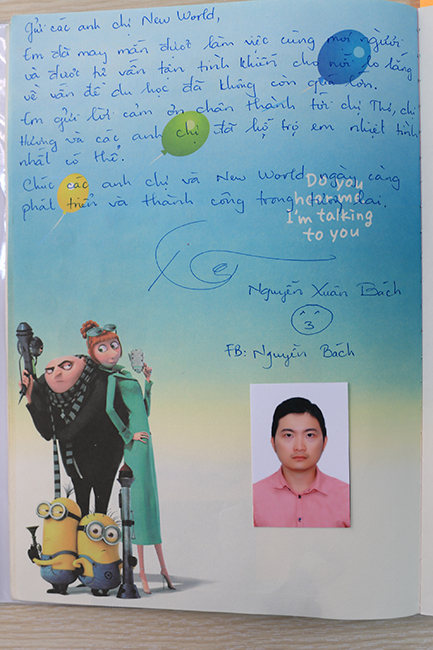 Gửi các anh chị New World,
Em đã may mắn được làm việc cùng mọi người
và được tư vấn tận tình khiến cho nỗi lo lắng
về vấn đề du học đã không còn quá lớn.
Em gửi lời cảm ơn chân thành tới chị Thư, chị
Thương và các anh chị đã hỗ trợ em nhiệt tình
nhất có thể.
Chúc các anh chị và New World ngày càng
phát triển và thành công trong tương lai.
Do you
hear me,
I'm talking
to you
Nguyễn Xuân Bách
FB: Nguyễn Bách